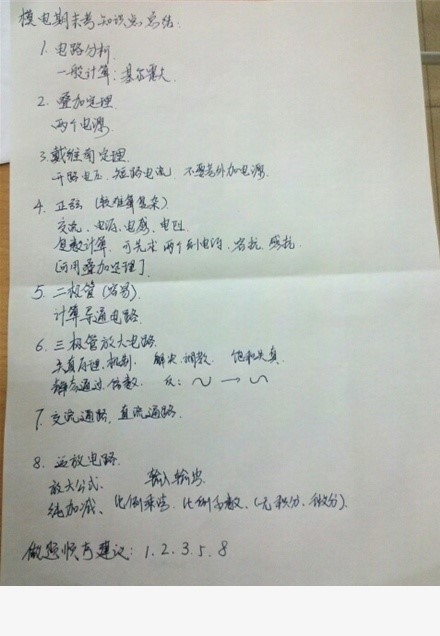 模电期末考知识点总结:
1. 电路分析.
一般计算: 基尔霍夫.
2. 叠加定理
两个电源.
3. 戴维南定理.
开路电压. 短路电流. 不要忘外加电源.
4. 正弦 (较难算复杂)
交流. 电源. 电感. 电阻.
复数计算. 可先求 两个 电流. 容抗. 感抗.
[可用叠加定理].
5. 二极管 (容易).
计算导通电路.
6. 三极管放大电路.
失真原理. 机制. 解决. 调数. 饱和失真.
静态通过. 倍数. 反: ～ → ～
7. 交流通路, 直流通路.
8. 运放电路.
放大公式. 输入输出.
纯加减、比例乘法. 比例系数、(无积分、微分).
做题顺序建议: 1. 2. 3. 5. 8